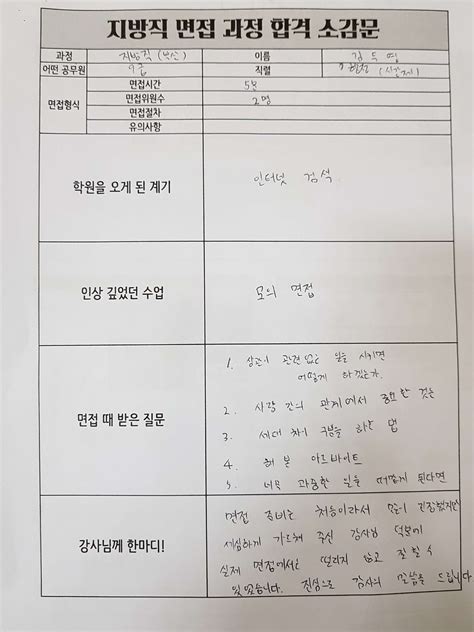 지방직 면접 과정 합격 소감문
과정 지방직 (부산) 이름 김두영
어떤 공무원 9급 직렬 (시간제)
면접형식
면접시간 5분
면접위원수 2명
면접절차
유의사항
학원을 오게 된 계기 인터넷 검색
인상 깊었던 수업 모의 면접
면접 때 받은 질문
1. 상관이 관련 없는 일을 시키면
어떻게 하겠는가.
2. 사람 간의 관계에서 중요한 것은
3. 세대 차이 구분을 하는 법
4. 해 본 아르바이트
5. 너무 과중한 일을 떠맡게 된다면
강사님께 한마디!
면접 준비는 처음이라서 많이 긴장했지만
세심하게 가르쳐 주신 강사님 덕분에
실제 면접에서는 떨리지 않고 잘 할 수
있었습니다. 진심으로 감사의 말씀을 드립니다.